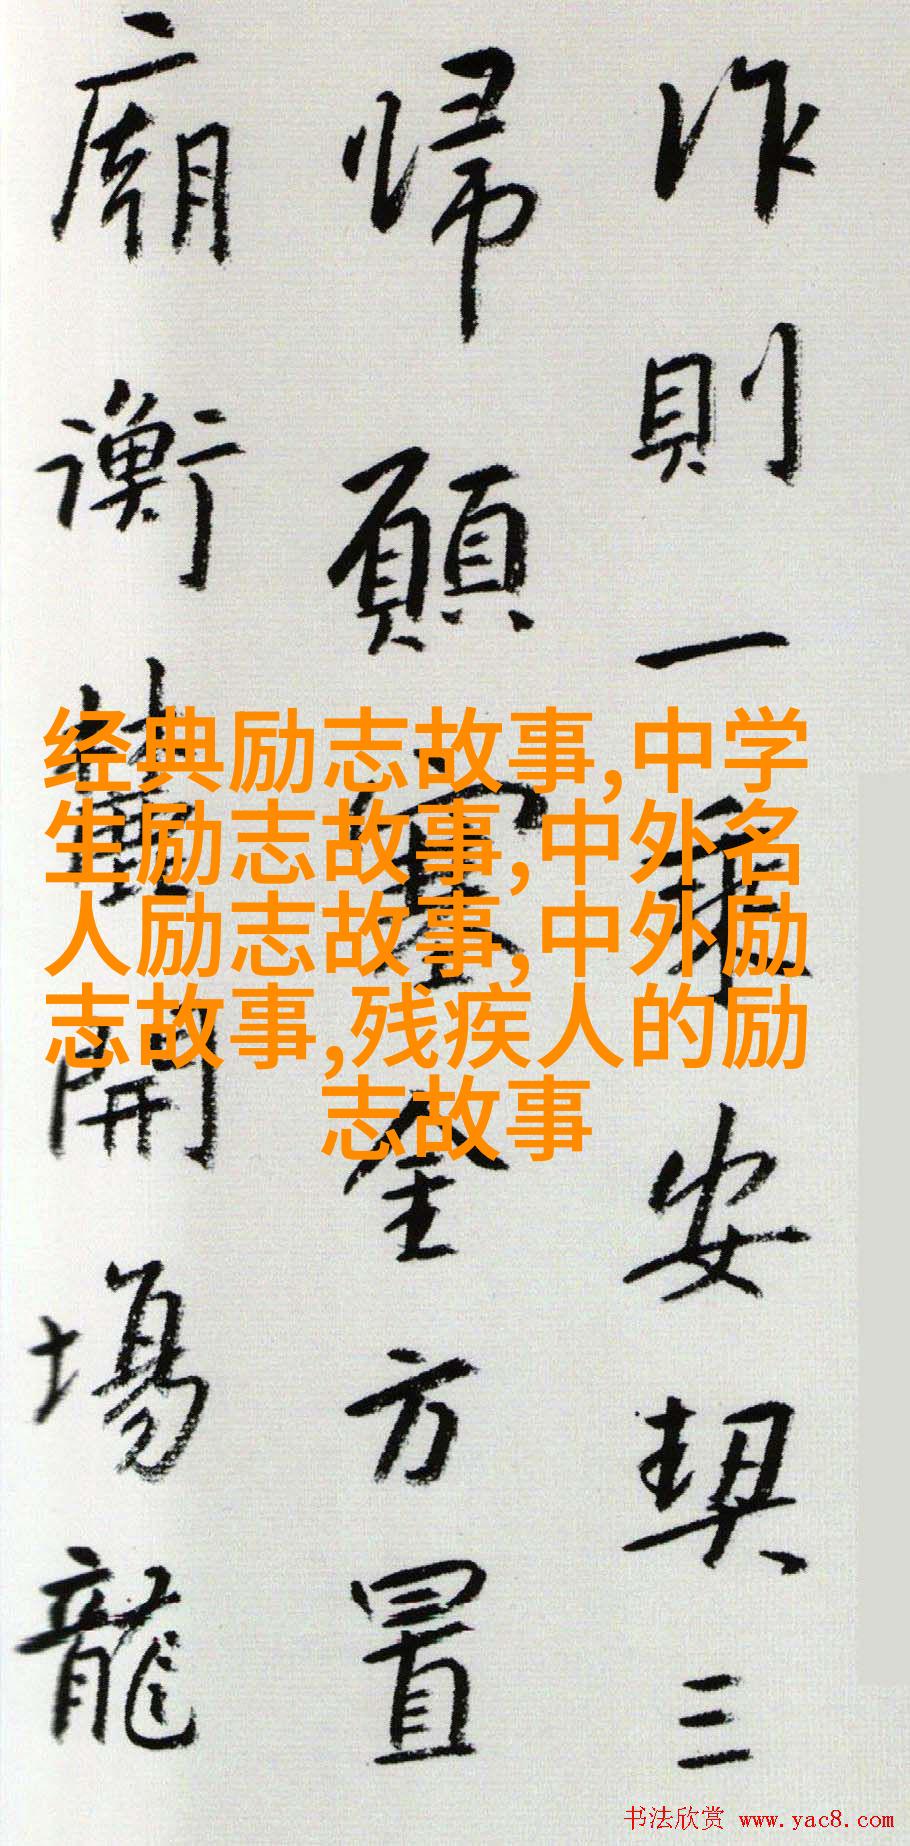 作則一乘安契三
帰願金方置
廟衡開場龍
经典励志故事,中学
生励志故事,中外名
人励志故事,中外励
志故事,残疾人的励
志故事
书法欣赏 www.yac8.com